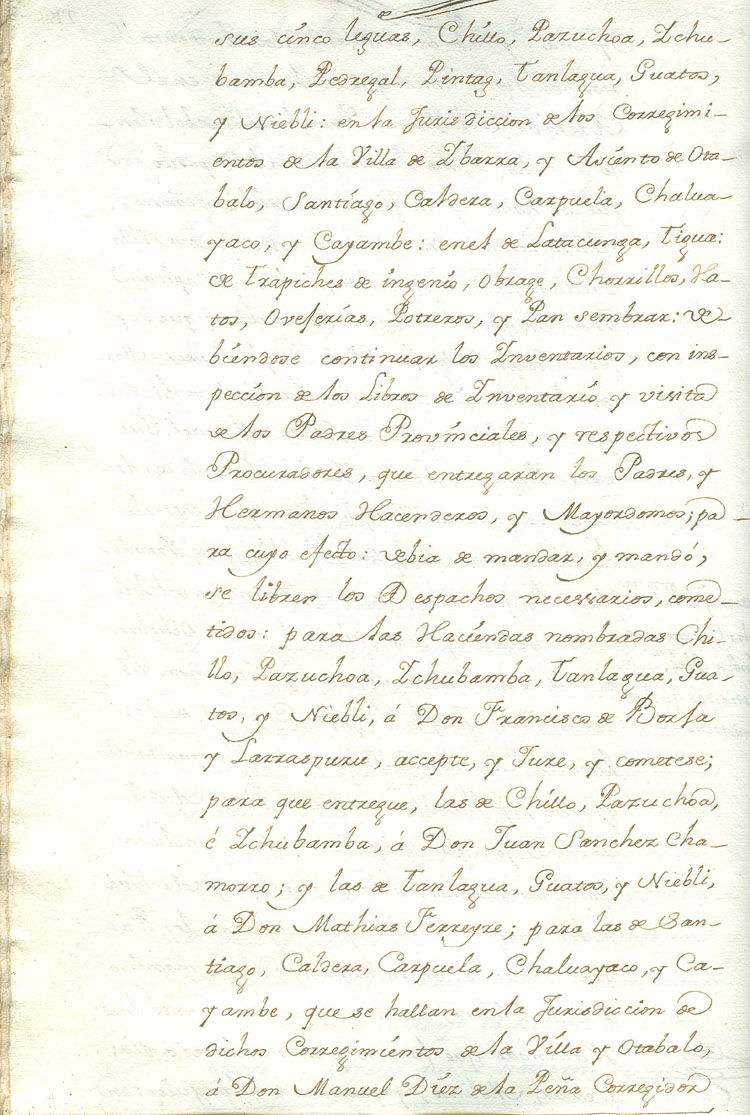 sus cinco leguas, Chillo, Pazuchoa, Ichu-
bamba, Pedregal, Pintag, Tanlagua, Guatos,
y Niebli: en la Jurisdiccion de los Corregimi-
entos de la Villa de Ibarra, y Asiento de Ota-
balo, Santiago, Caldera, Carpuela, Chalua-
yaco, y Cayambe: en el de Latacunga, Tigua:
de Trapiches de ingenio, obrage, Chorrillos, Ha-
tos, Ovejerias, Potreros, y Pan sembrar: de-
biendose continuar los Inventarios, con ins-
peccion de los Libros de Inventario y visita
de los Padres Provinciales, y respectivos
Procuradores, que entregaran los Padres, y
Hermanos Hacenderos, y Mayordomos; pa-
ra cuyo efecto: debia de mandar, y mandó,
se libren los Despachos necessarios, come-
tidos: para las Haciendas nombradas Chi-
llo, Pazuchoa, Ichubamba, Tanlagua, Gua-
tos, y Niebli, á Don Francisco de Borja
y Larraspuru, accepte, y Jure, y cometese;
para que entregue, las de Chillo, Pazuchoa,
é Ichubamba, á Don Juan Sanchez Cha-
morro; y las de Tanlagua, Guatos, y Niebli,
á Don Mathias Ferreyre; para las de San-
tiago, Caldera, Carpuela, Chaluayaco, y Ca-
yambe, que se hallan en la Jurisdiccion de
dichos Corregimientos de la Villa y Otabalo,
á Don Manuel Diez de la Peña Corregidor